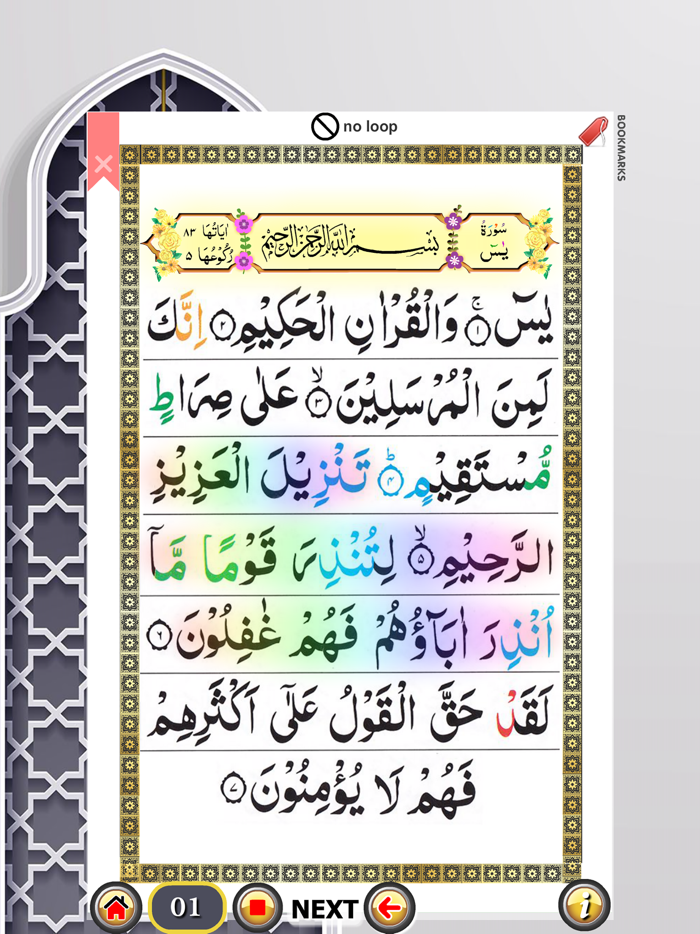 no loop
BOOKMARKS
سُوْرَةُ يٰسٓ
بِسْمِ اللّٰهِ الرَّحْمٰنِ الرَّحِيْمِ
اٰيَاتُهَا ٨٣
رُكُوْعُهَا ٥
يٰسٓ ۚ﴿١﴾ وَالْقُرْاٰنِ الْحَكِيْمِ ﴿٢﴾ اِنَّكَ
لَمِنَ الْمُرْسَلِيْنَ ۙ﴿٣﴾ عَلٰى صِرَاطٍ
مُّسْتَقِيْمٍ ؕ﴿٤﴾ تَنْزِيْلَ الْعَزِيْزِ
الرَّحِيْمِ ۙ﴿٥﴾ لِتُنْذِرَ قَوْمًا مَّاۤ
اُنْذِرَ اٰبَآؤُهُمْ فَهُمْ غٰفِلُوْنَ ﴿٦﴾
لَقَدْ حَقَّ الْقَوْلُ عَلٰۤى اَكْثَرِهِمْ
فَهُمْ لَا يُؤْمِنُوْنَ ﴿٧﴾
01
NEXT
i